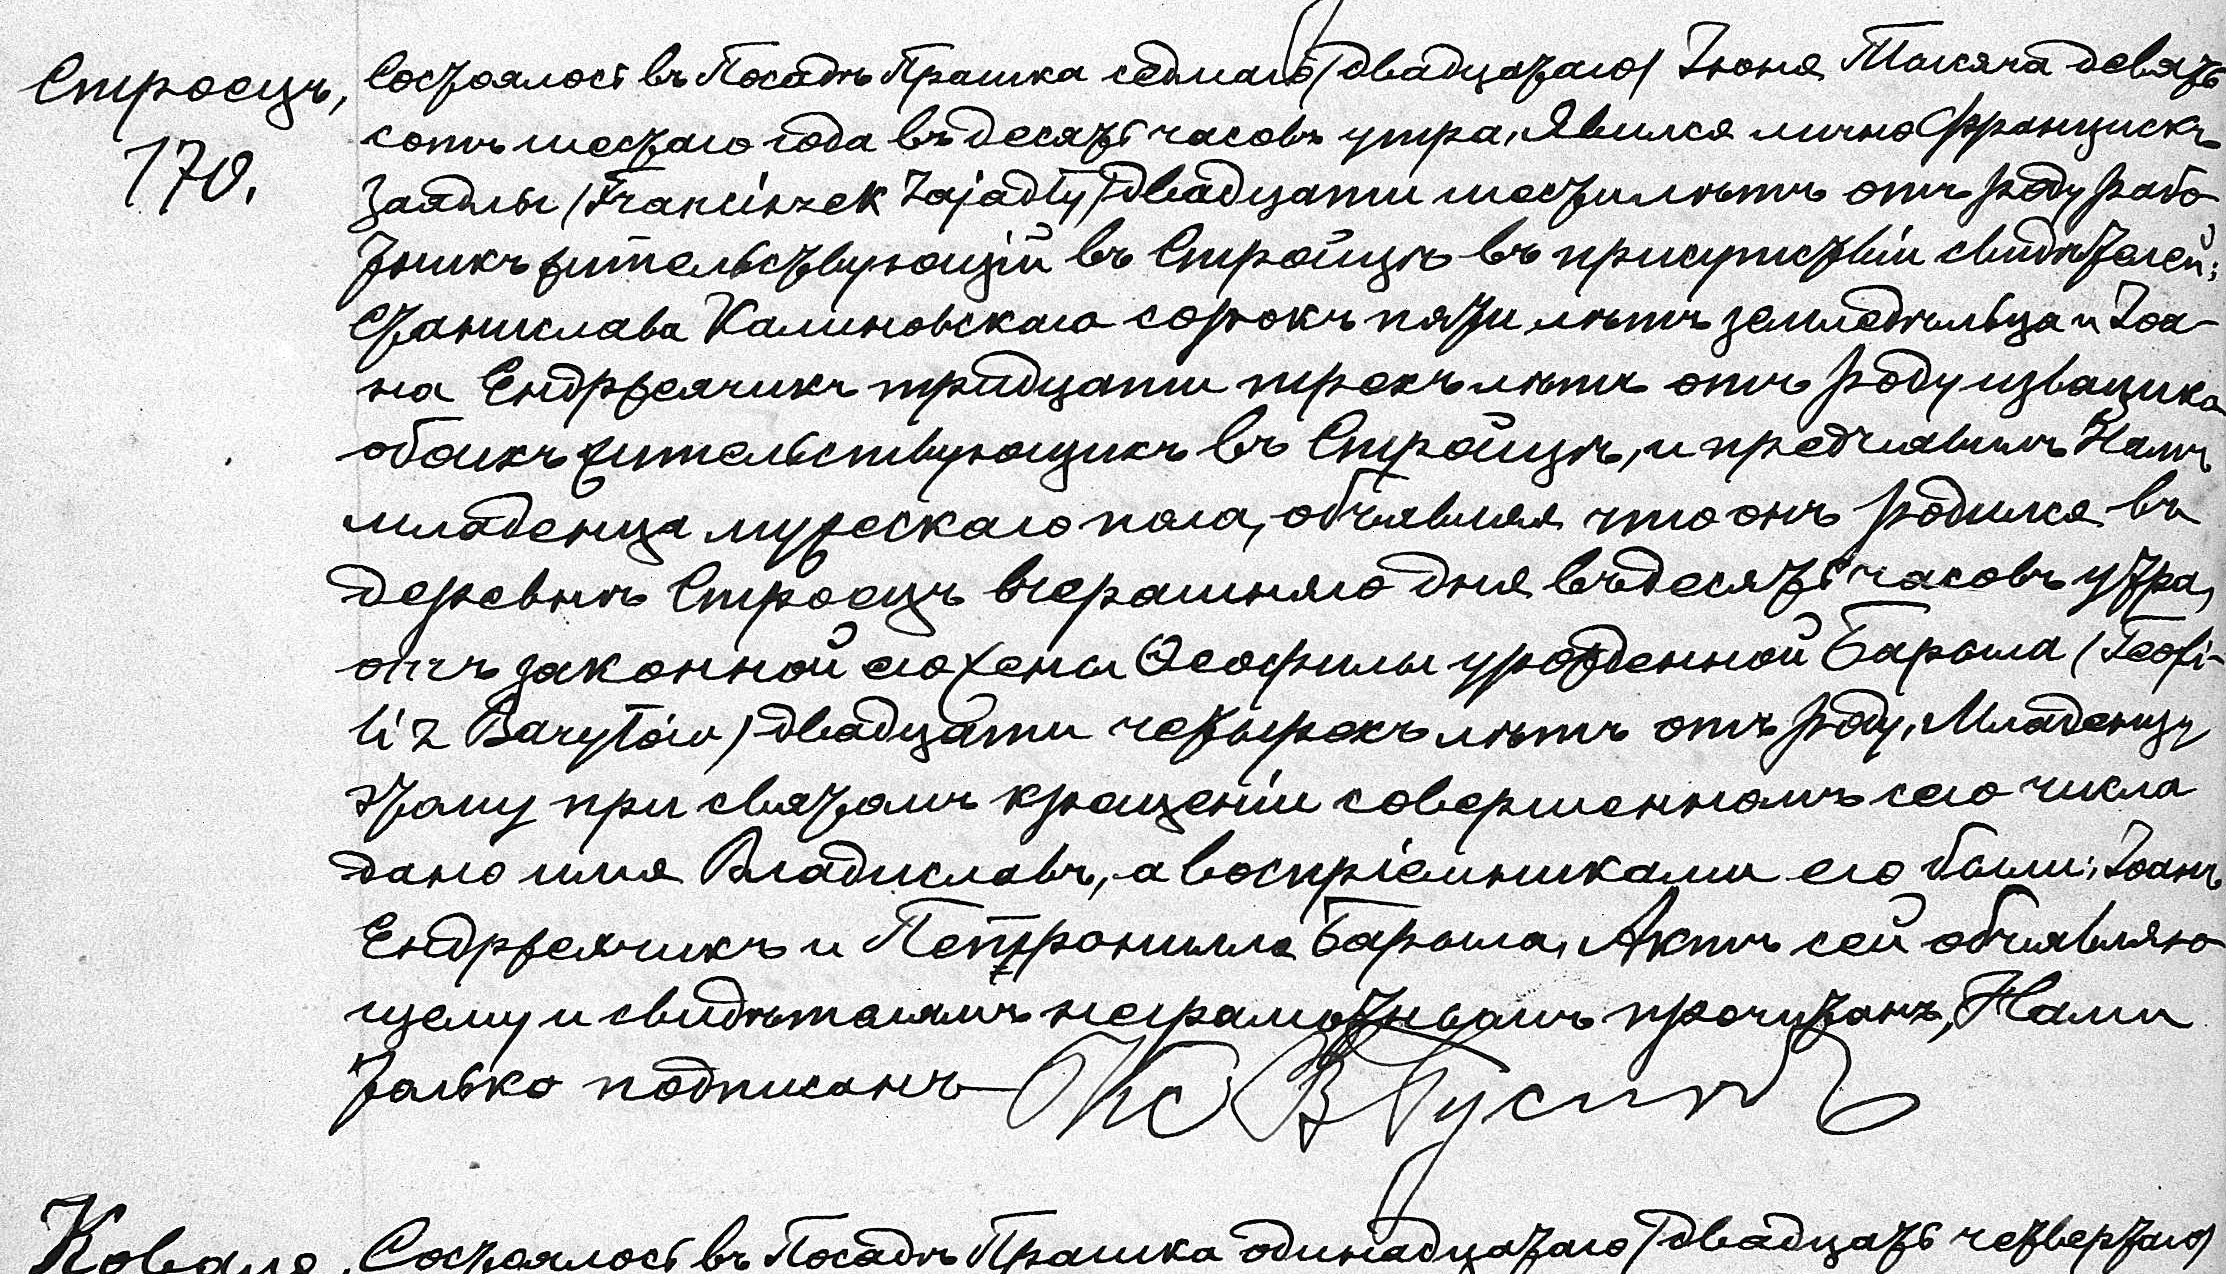 Строецъ,
170.
Состоялось въ Посадѣ Прашка седмаго /двадцатаго/ Іюня Тысяча девять
сотъ шестаго года въ десять часовъ утра. Явился лично Францискъ
Заядлы /Franciszek Zajadły/ двадцати шести лѣтъ отъ роду рабо
тникъ жительствующій въ Стройцѣ въ присутствіи свидѣтелей:
Станислава Калиновскаго сорокъ пяти лѣтъ земледѣльца и Іоа-
на Ендржеячикъ тридцати трехъ лѣтъ отъ роду извощика
обоихъ жительствующихъ въ Стройцѣ, и предъявилъ Намъ
младенца мужескаго пола, объявляя что онъ родился въ
деревнѣ Строецъ вчерашняго дня въ десять часовъ утра,
отъ законной его жены Ѳеофилы урожденной Барыла /Teofi-
li z Baryłów/ двадцати четырехъ лѣтъ отъ роду. Младенцу
этому при святомъ крещеніи совершенномъ сего числа
дано имя Владиславъ, а воспріемниками его были: Іоанъ
Ендржеячикъ и Петронилла Барыла. Актъ сей объявляю
щему и свидѣтелямъ неграмотнымъ прочитанъ, Нами
только подписанъ
Состоялось въ Посадѣ Прашка одинадцатаго /двадцать четвертаго/